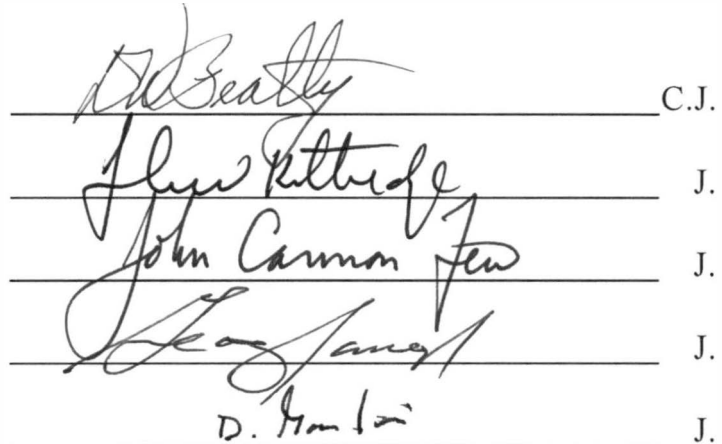 DW Beatty C.J.
Kittredge J.
John Cannon Few J.
George James J.
D. J.